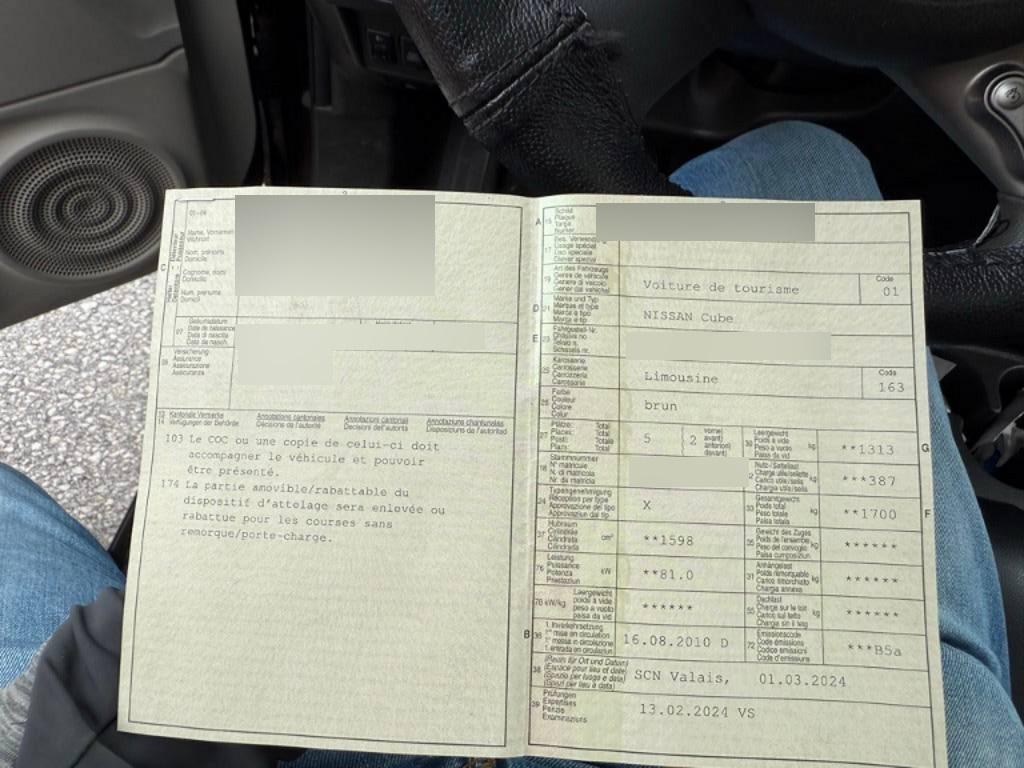 01-06
Name, Vornamen
Wohnort
Nom, prénoms
Domicile
Cognome, nomi
Domicilio
Num, prenums
Domicil
C
07
Geburtsdatum
Date de naissance
Data di nascita
Data da nasch.
09
Versicherung
Assurance
Assicurazione
Assicuranza
13
14
Kantonale Vermerke
Verfügungen der Behörde
Annotations cantonales
Décisions de l'autorité
Annotazioni cantonali
Decisioni dell'autorità
Annotaziuns chantunalas
Disposiziuns da l'autoritad
103 Le COC ou une copie de celui-ci doit
accompagner le véhicule et pouvoir
être présenté.
174 La partie amovible/rabattable du
dispositif d'attelage sera enlevée ou
rabattue pour les courses sans
remorque/porte-charge.
A 15
Schild
Plaque
Targa
Numer
17
Usage spécial
Uso speciale
Diever spezial
19
Art des Fahrzeugs
Genre de véhicule
Genere di veicolo
Gener dal vehichel
Voiture de tourisme
Code
01
D 21
Marke und Typ
Marque et type
Marca e tipo
Marca e tip
NISSAN Cube
E 23
Fahrgestell-Nr.
Châssis no
Telaio n.
Schassis nr.
25
Karosserie
Carrosserie
Carrozzeria
Carossaria
Limousine
Code
163
26
Farbe
Couleur
Colore
Colur
brun
27
Plätze: Total
Places: Total
Posti: Totale
Plazs: Total
5
(2
vorne)
avant)
anteriori)
davant)
30
Leergewicht
Poids à vide
Peso a vuoto
Paisa da vid
kg
**1313
G
18
Stammnummer
N° matricule
N. di matricola
Nr. da matricla
Nutz-/Sattellast
Charge utile/sellette
Carico utile/sella
Chargia utila/sella
kg
***387
24
Typengenehmigung
Réception par type
Approvazione del tipo
Approvaziun dal tip
X
33
Gesamtgewicht
Poids total
Peso totale
Paisa totala
kg
**1700
F
37
Hubraum
Cylindrée
Cilindrata
Cilindrada
cm³
**1598
35
Gewicht des Zuges
Poids de l'ensemble
Peso del convoglio
Paisa cumposiziun
kg
******
76
Leistung
Puissance
Potenza
Prestaziun
kW
**81.0
31
Anhängelast
Poids remorquable
Carico rimorchiato
Chargia annexa
kg
******
78 kW/kg
Leergewicht
poids à vide
peso a vuoto
paisa da vid
******
55
Dachlast
Charge sur le toit
Carico sul tetto
Chargia sin il tetg
kg
******
B 36
1. Inverkehrsetzung
1re mise en circulation
1a messa in circolazione
1. entrada en circulaziun
16.08.2010 D
72
Emissionscode
Code émissions
Codice emissioni
Code d'emissiuns
***B5a
38
(Raum für Ort und Datum)
(Espace pour lieu et date)
(Spazio per luogo e data)
(Spazi per lieu e data)
SCN Valais, 01.03.2024
39
Prüfungen
Expertises
Perizie
Examinaziuns
13.02.2024 VS